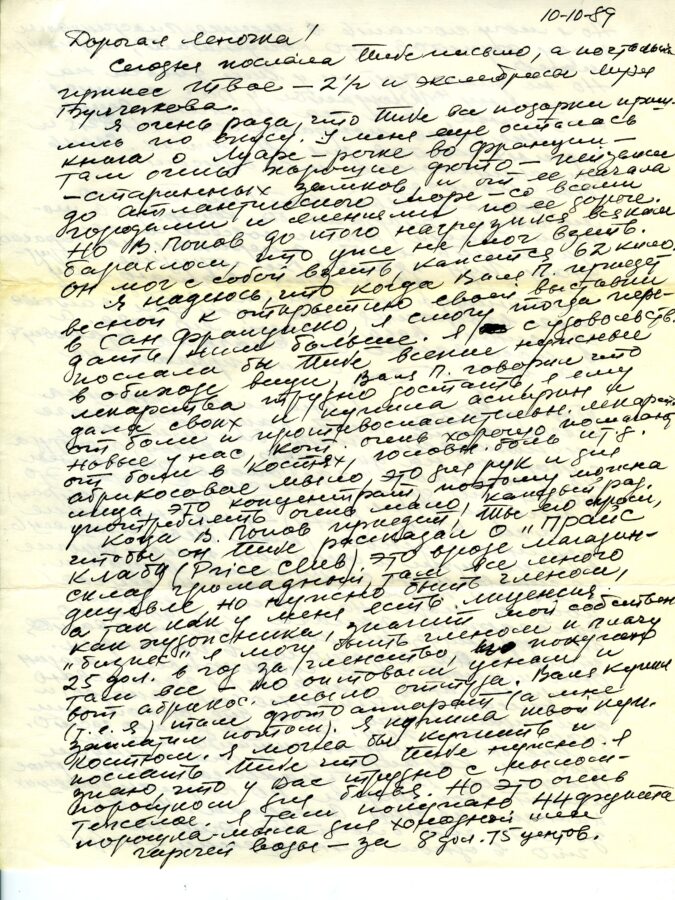 10-10-89
Дорогая Леночка!
Сегодня послала Тебе письмо, а почтальон
принес Твое – 2½ и экслибрисы Музея
Булгакова.
Я очень рада, что Тебе все подарки приш-
лись по вкусу. У меня еще осталась
книга о Луаре – речке во Франции –
там очень хорошие фото – пейзажи
– старинных замков и от ее начала
до атлантического море – со всеми
городами и селениями по ее дороге.
Но В. Попов до того нагрузился всяким
барахлом, что уже не мог взять.
он мог с собой взять, кажется 62 кило.
Я надеюсь, что когда Валя П. приедет
весной к открытию своей выставки
в Сан Франциско, я смогу тогда пере-
дать ним больше. Я с удовольств.
послала бы Тебе всякие нужные
в обиходе вещи, Валя П. говорил что
лекарства трудно достать, я ему
дала своих и купила аспирин и
от боли и противовоспалительн. лекарств
новые у нас, кот. очень хорошо помогают
от боли в костях, головн. боль и т.д.
абрикосовое мыло, это для рук и для
лица, это концентрат, поэтому можна
употреблять очень мало, каждый раз.
Когда В. Попов приедет, Ты его проси,
чтобы он Тебе рассказал о "Прайс
Клабе (Price Club). Это вроде магазин-
склад громадный, там все много
дешевле, но нужно быть членом,
а так как у меня есть лицензия
как художника, значит мой собствен
"бизнес" я могу быть членом и плачу
25 дол. в год за членство, но покупаю
там все – по оптовым ценам и
вот абрикос. мыло оттуда. Валя купил
(т.е. я) там фотоаппарат (а мне
заплатил потом). Я купила твой
костюм. Я могла бы купить и
послать Тебе что Тебе нужно. Я
знаю, что у Вас трудно с мылом-
порошком для белья. Но это очень
тяжелое. Я там покупаю 44 фунта
порошка-мыла для холодной или
горячей воды – за 8 дол. 75 центов.